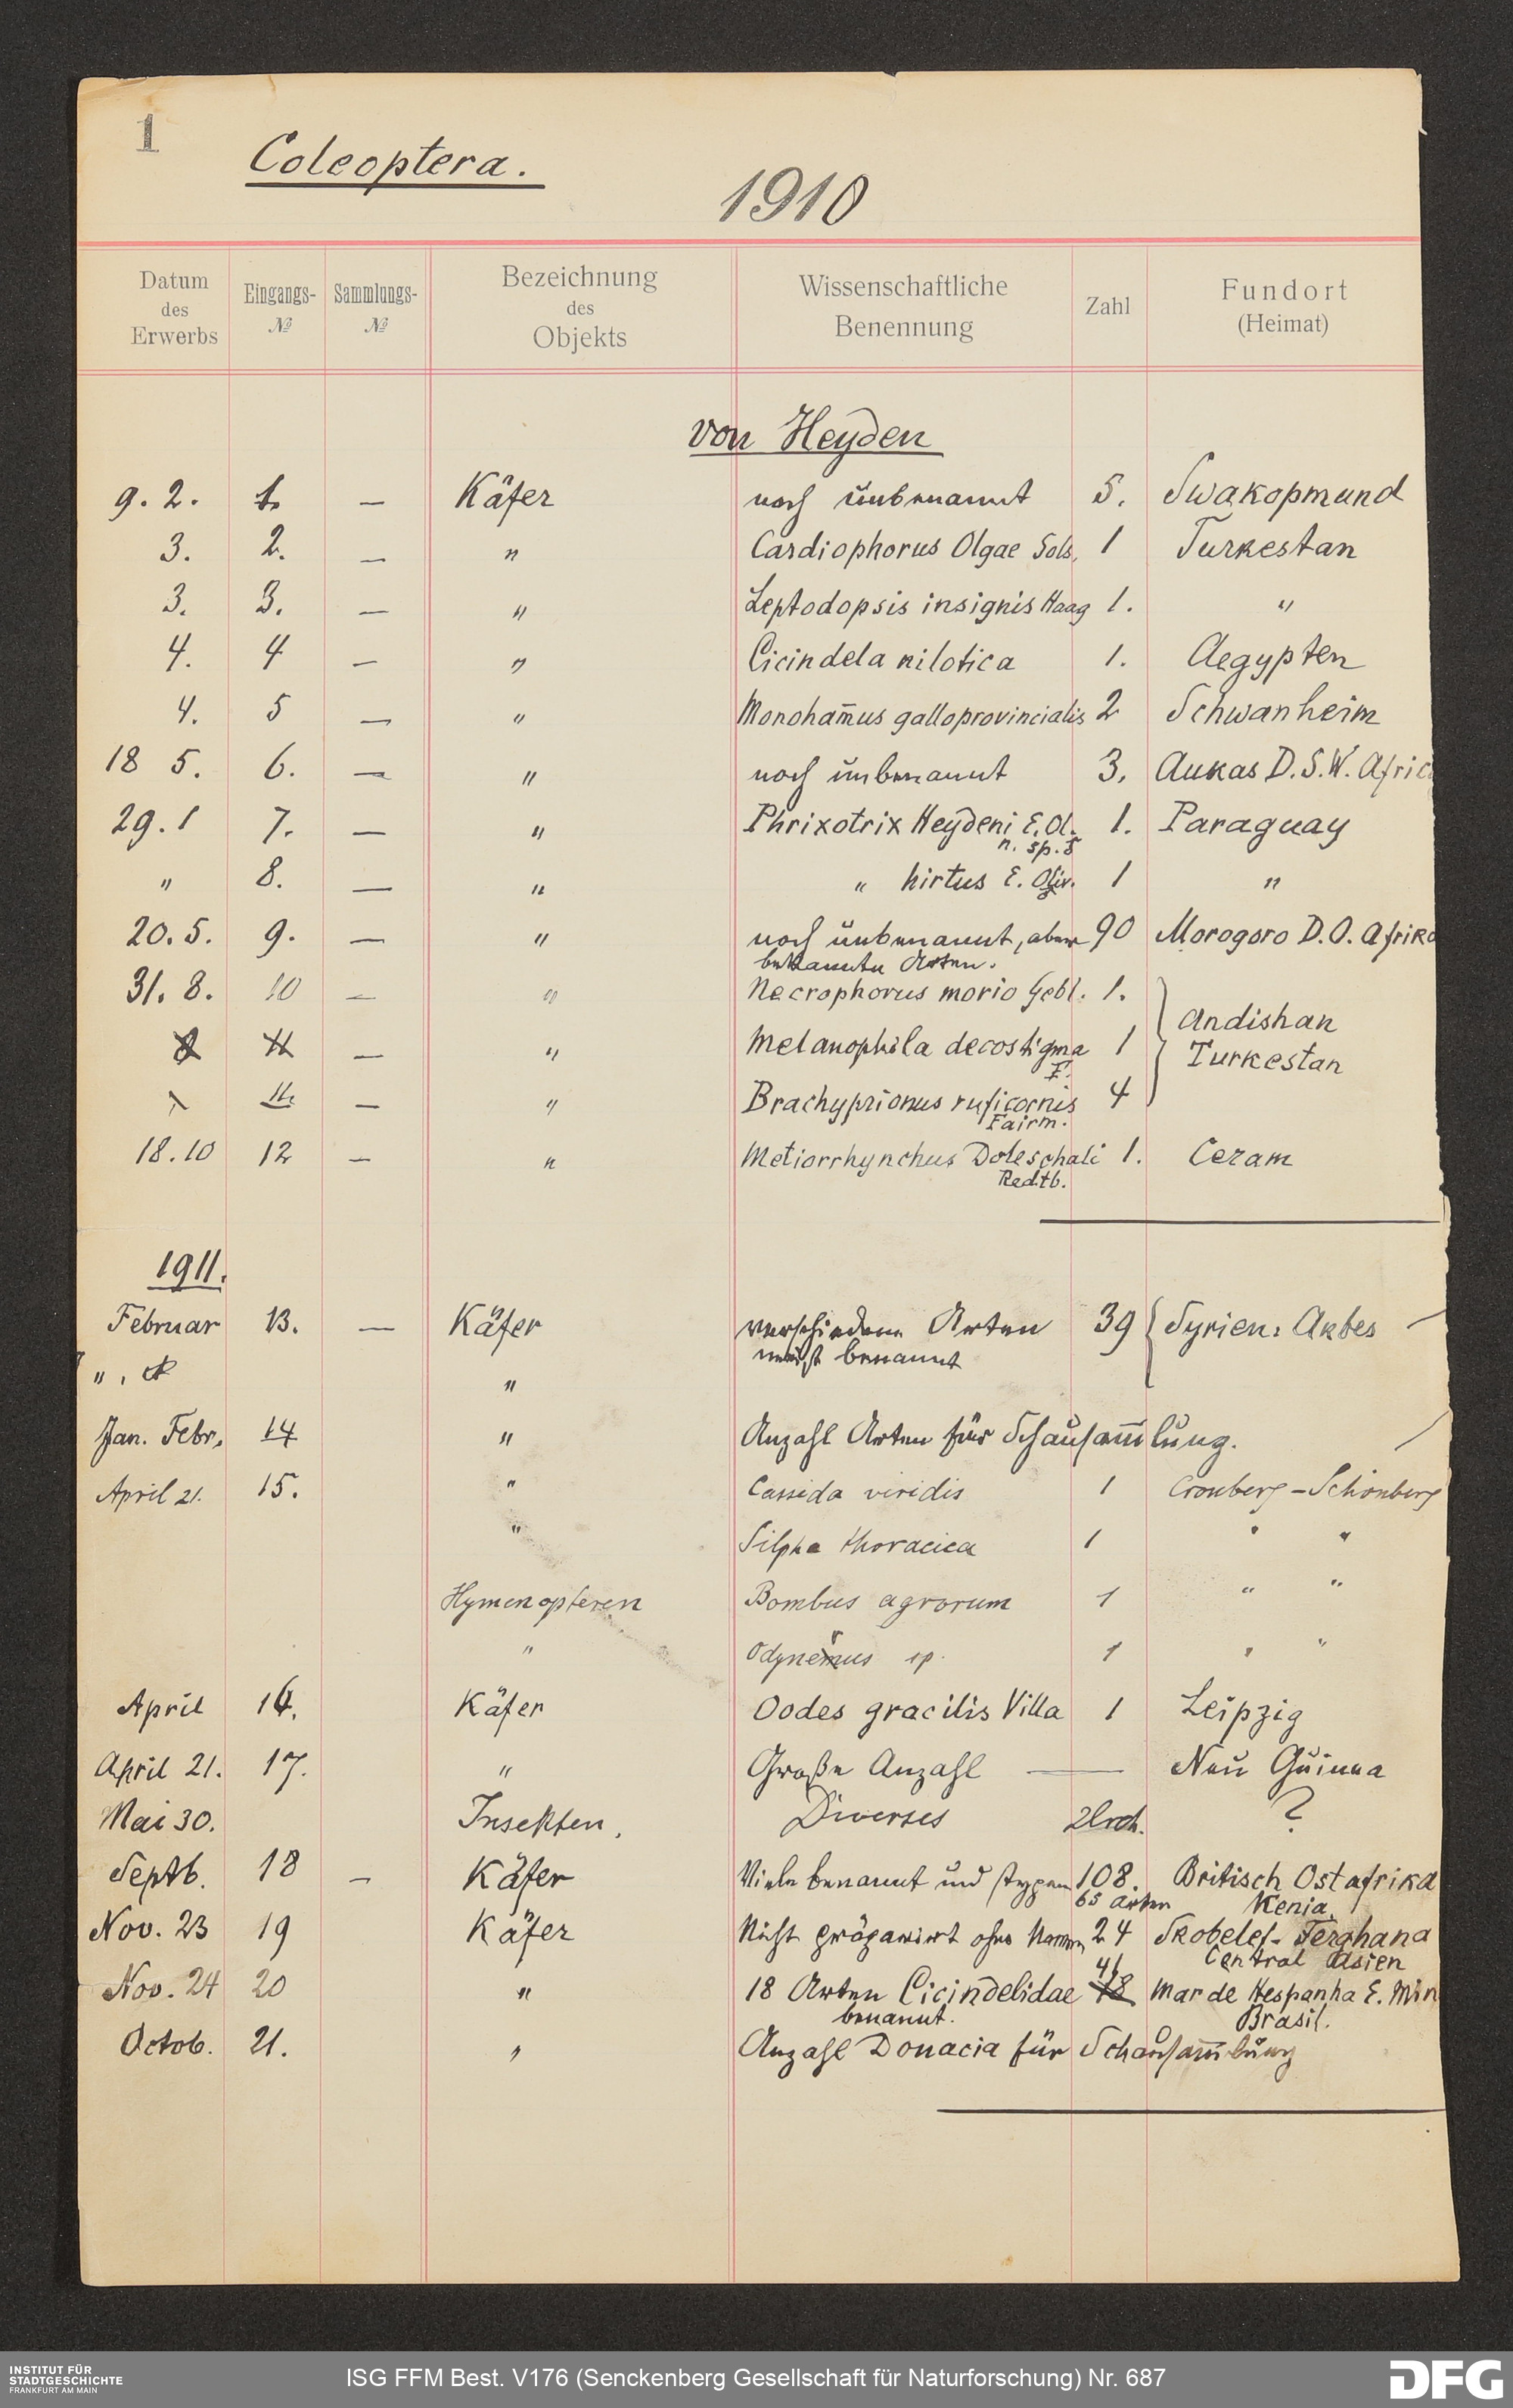 1
Coleoptera.
1910
Datum des Erwerbs Eingangs-№ Sammlungs-№ Bezeichnung des Objekts Wissenschaftliche Benennung Zahl Fundort (Heimat)
von Heyden
9. 2. 1. — Käfer noch unbenannt 5. Swakopmund
3. 2. — " Cardiophorus Olgae Sols. 1 Turkestan
3. 3. — " Leptodopsis insignis Haag 1. "
4. 4 — " Cicindela nilotica 1. Aegypten
4. 5 — " Monoham̄us galloprovincialis 2 Schwanheim
18 5. 6. — " noch unbenannt 3. Aukas D.S.W. Afric
29. 1 7. — " Phrixotrix Heydeni E. Ol. 1. Paraguay
n. sp. 5
" 8. — " " hirtus E. Oliv. 1 "
20. 5. 9. — " noch unbenannt, aber 90 Morogoro D.O. Afrika
bekannte Arten.
31. 8. 10 — " Necrophorus morio Gebl. 1.
Andishan
11 — " Melanophila decostigma 1
F.
Turkestan
11. — " Brachyprionus ruficornis 4
Fairm.
18. 10 12 — " Metiorrhynchus Doleschali 1. Ceram
Redtb.
1911.
Februar 13. — Käfer verschiedene Arten 39 Syrien: Akbes
meist benannt
" "
Jan. Febr. 14 " Anzahl Arten für Schausam̄lung.
April 21. 15. " Cassida viridis 1 Cronberg - Schönberg
" Silpha thoracica 1 " "
Hymenopteren Bombus agrorum 1 " "
" Odynerus sp. 1 " "
April 16. Käfer Oodes gracilis Villa 1 Leipzig
April 21. 17. " Große Anzahl — Neu Guinea
Mai 30. Insekten, Diverses ?
Septb. 18 — Käfer Viele benannt und Typen 108. Britisch Ostafrika
65 Arten Kenia.
Nov. 23 19 Käfer Nicht präparirt ohne Namen 24 Skobelef - Ferghana
Central Asien
Nov. 24 20 " 18 Arten Cicindelidae 46 18 Mar de Hespanha E. Min
benannt. Brasil.
Octob. 21. " Anzahl Donacia für Schausam̄lung
INSTITUT FÜR
STADTGESCHICHTE
FRANKFURT AM MAIN
ISG FFM Best. V176 (Senckenberg Gesellschaft für Naturforschung) Nr. 687
DFG